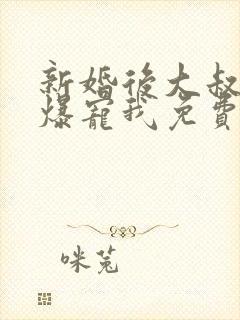 新婚後大叔
爆寵我免費
咪兔